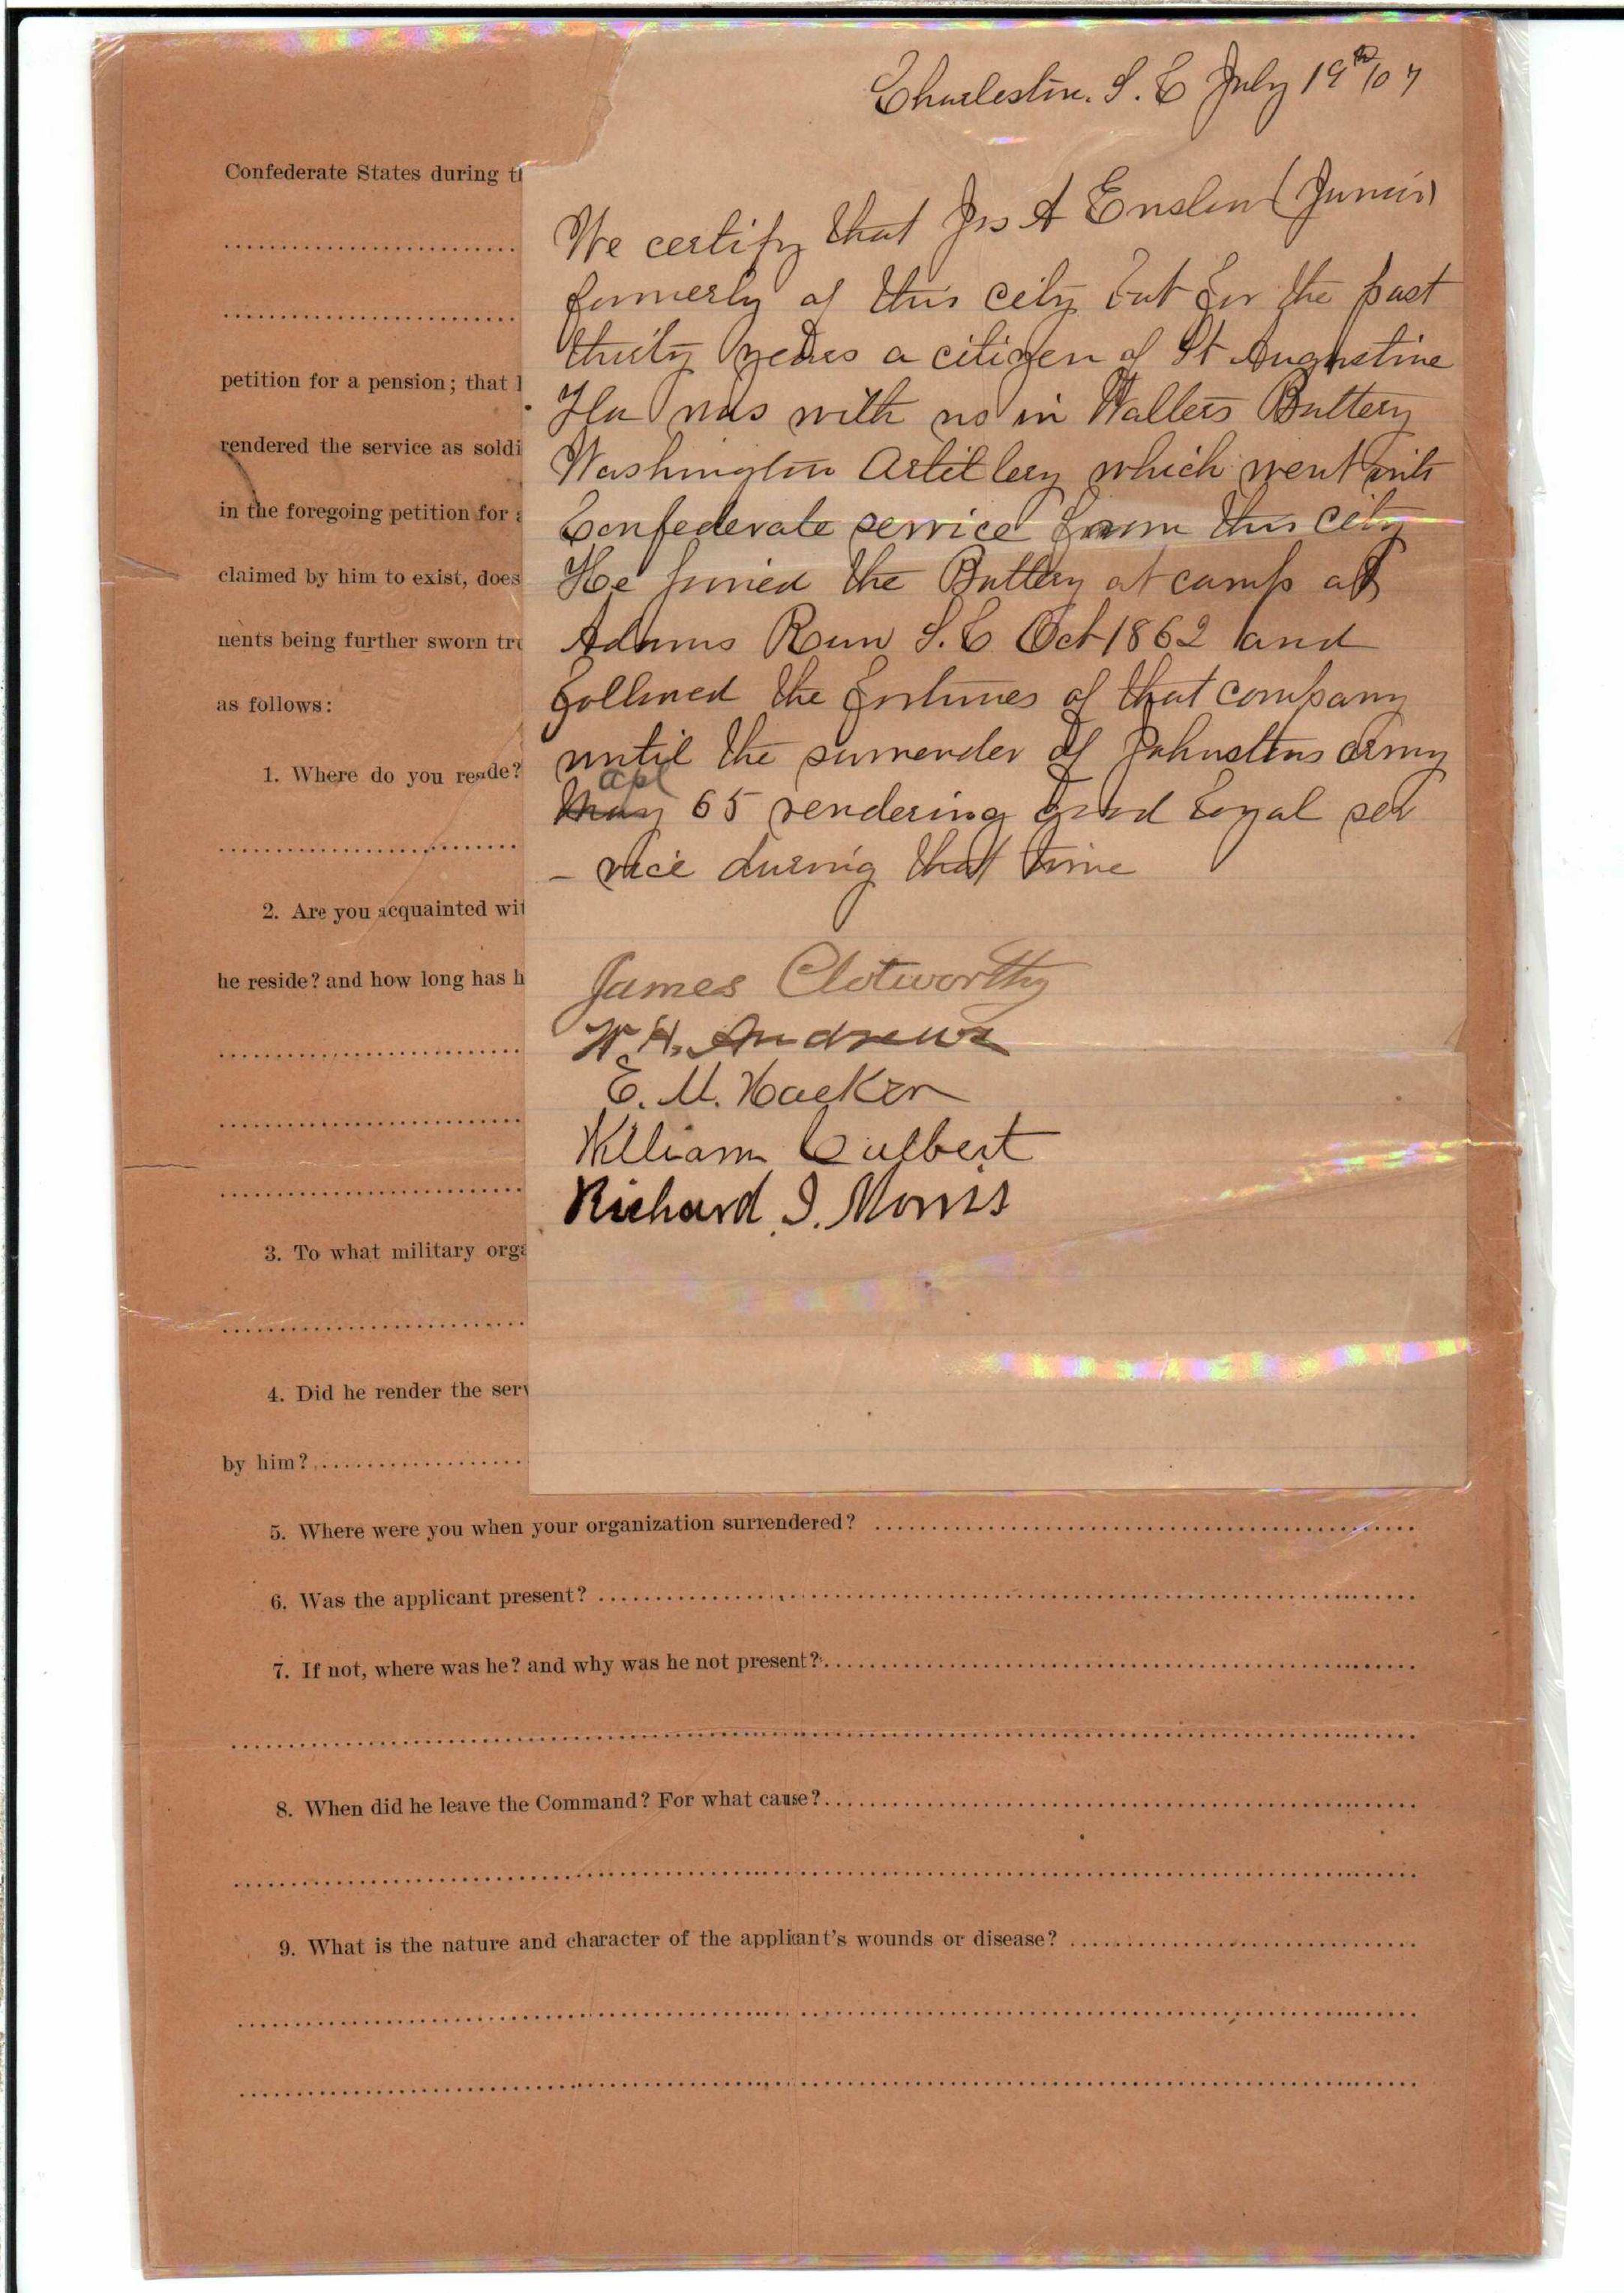 Charleston. S. C July 19th/07
We certify that Jas A Enslow (Junior)
formerly of this city but for the past
thirty years a citizen of St Augustine
Fla was with us in Walters Battery
Washington Artillery which went into
Confederate service from this city
He joined the Battery at camp at
Adams Run S. C Oct 1862 and
followed the fortunes of that company
until the surrender of Johnstons army
May apl 65 rendering good loyal ser
- vice during that time
James Clotworthy
W. H. Andrews
E. M. Hacker
William Culbert
Richard I. Morris
Confederate States during t
petition for a pension; that
rendered the service as soldi
in the foregoing petition for
claimed by him to exist, does
nents being further sworn tr
as follows:
1. Where do you reside?
2. Are you acquainted wit
he reside? and how long has h
3. To what military orga
4. Did he render the serv
by him?
5. Where were you when your organization surrendered?
6. Was the applicant present?
7. If not, where was he? and why was he not present?
8. When did he leave the Command? For what cause?
9. What is the nature and character of the applicant's wounds or disease?